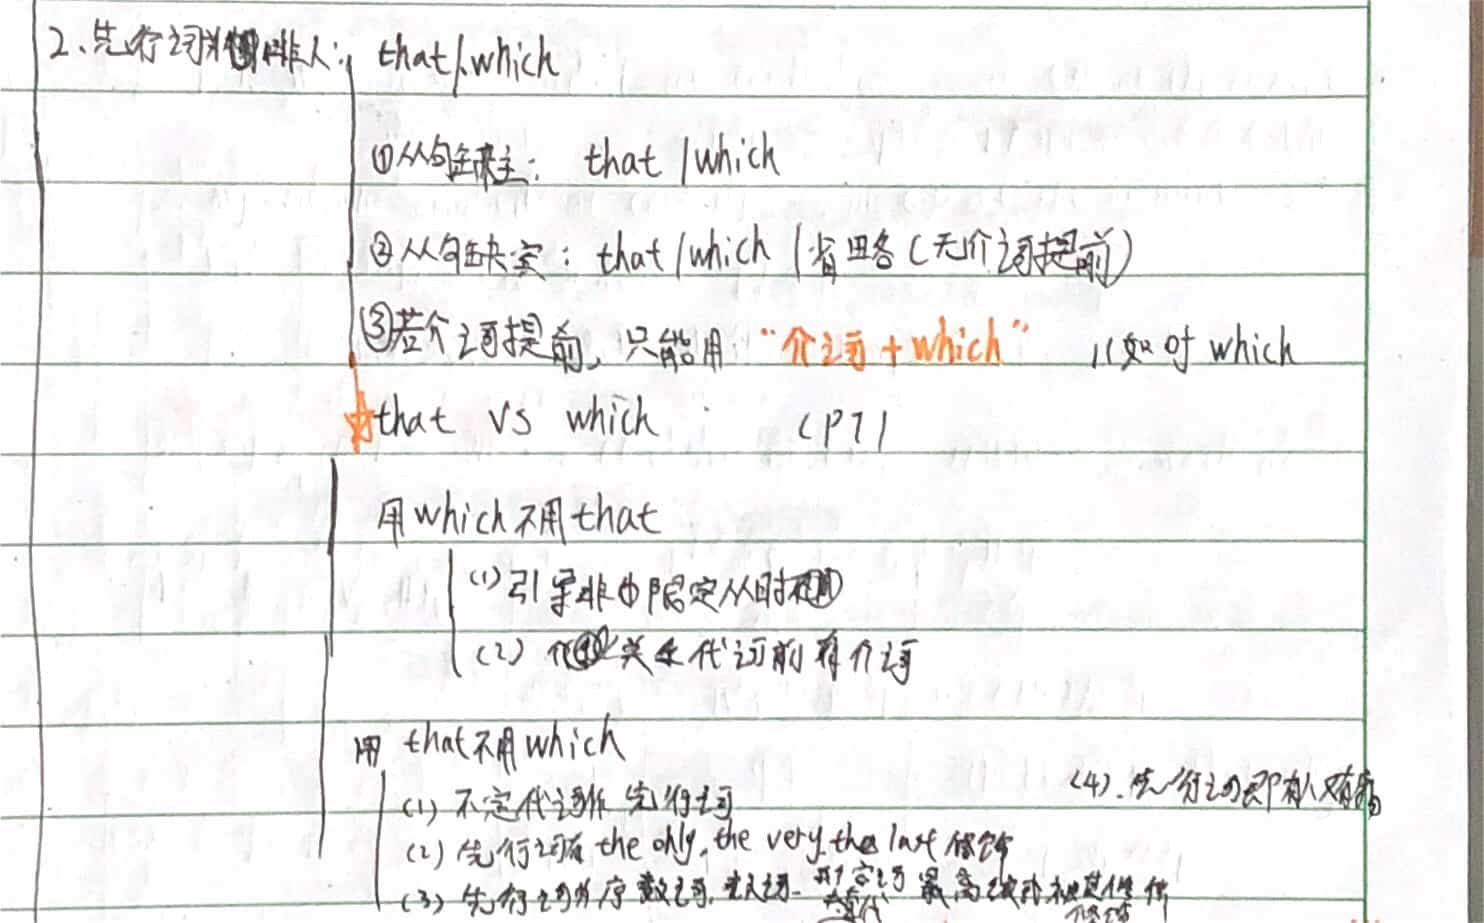 2、先行词为非人: that/which
①从句缺主: that / which
②从句缺宾: that / which / 省略(无介词提前)
③若介词提前,只能用 "介词+which" //如 of which
☆that VS which (P7)
用which不用that
(1) 引导非限定从时
(2) 关系代词前有介词
用 that不用which
(1) 不定代词作先行词
(4). 先行词即有人又有物
(2) 先行词有 the only, the very, the last 修饰
(3) 先行词为序数词、数词、最高级